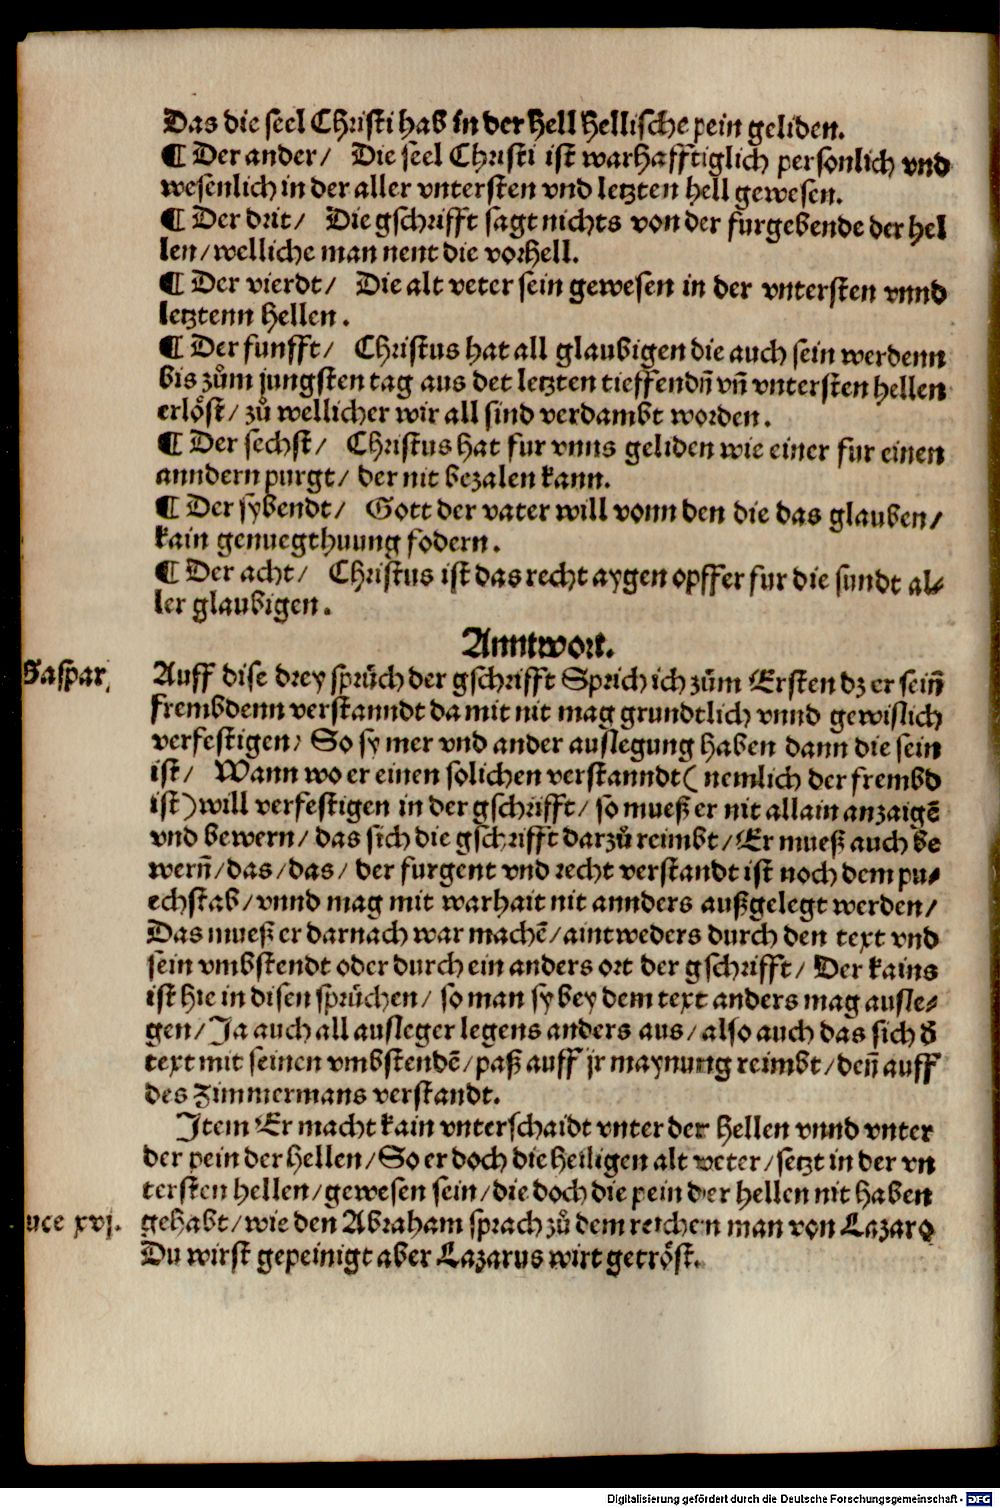 Das die seel Christi hab in der hell hellische pein geliden.
¶ Der ander/ Die seel Christi ist warhafftiglich personlich vnd
wesenlich in der aller vntersten vnd letzten hell gewesen.
¶ Der drit/ Die gschrifft sagt nichts von der furgebende der hel
len/welliche man nent die vorhell.
¶ Der vierdt/ Die alt veter sein gewesen in der vntersten vnnd
letztenn hellen.
¶ Der funfft/ Christus hat all glaubigen die auch sein werdenn
bis zům jungsten tag aus det letzten tieffendn̄ vn̄ vntersten hellen
erlöst/ zů wellicher wir all sind verdambt worden.
¶ Der sechst/ Christus hat fur vnns geliden wie einer fur einen
anndern purgt/ der nit bezalen kann.
¶ Der sybendt/ Gott der vater will vonn den die das glauben/
kain genuegthuung fodern.
¶ Der acht/ Christus ist das recht aygen opffer fur die sundt al⸗
ler glaubigen.
Anntwort.
Gaspar.
Auff dise drey sprůch der gschrifft Sprich ich zům Ersten dz er sein̄
frembdenn verstanndt da mit nit mag grundtlich vnnd gewislich
verfestigen/ So sy mer vnd ander auslegung haben dann die sein
ist/ Wann wo er einen solichen verstanndt (nemlich der frembd
ist) will verfestigen in der gschrifft/ so mueß er nit allain anzaigē
vnd bewern/ das sich die gschrifft darzů reimbt/ Er mueß auch be
wern̄/das/das/ der furgent vnd recht verstandt ist noch dem pu⸗
echstab/vnnd mag mit warhait nit annders außgelegt werden/
Das mueß er darnach war machē/aintweders durch den text vnd
sein vmbstendt oder durch ein anders ort der gschrifft/ Der kains
ist hie in disen sprůchen/ so man sy bey dem text anders mag ausle⸗
gen/Ja auch all ausleger legens anders aus/also auch das sich d̄
text mit seinen vmbstendē/paß auff jr maynung reimbt/den̄ auff
des Zimmermans verstandt.
Item Er macht kain vnterschaidt vnter der hellen vnnd vnter
der pein der hellen/So er doch die heiligen alt veter/setzt in der vn
tersten hellen/gewesen sein/die doch die pein der hellen nit haben
uce xvj.
gehabt/wie den Abraham sprach zů dem reichen man von Lazaro
Du wirst gepeinigt aber Lazarus wirt getröst.
Digitalisierung gefördert durch die Deutsche Forschungsgemeinschaft - DFG